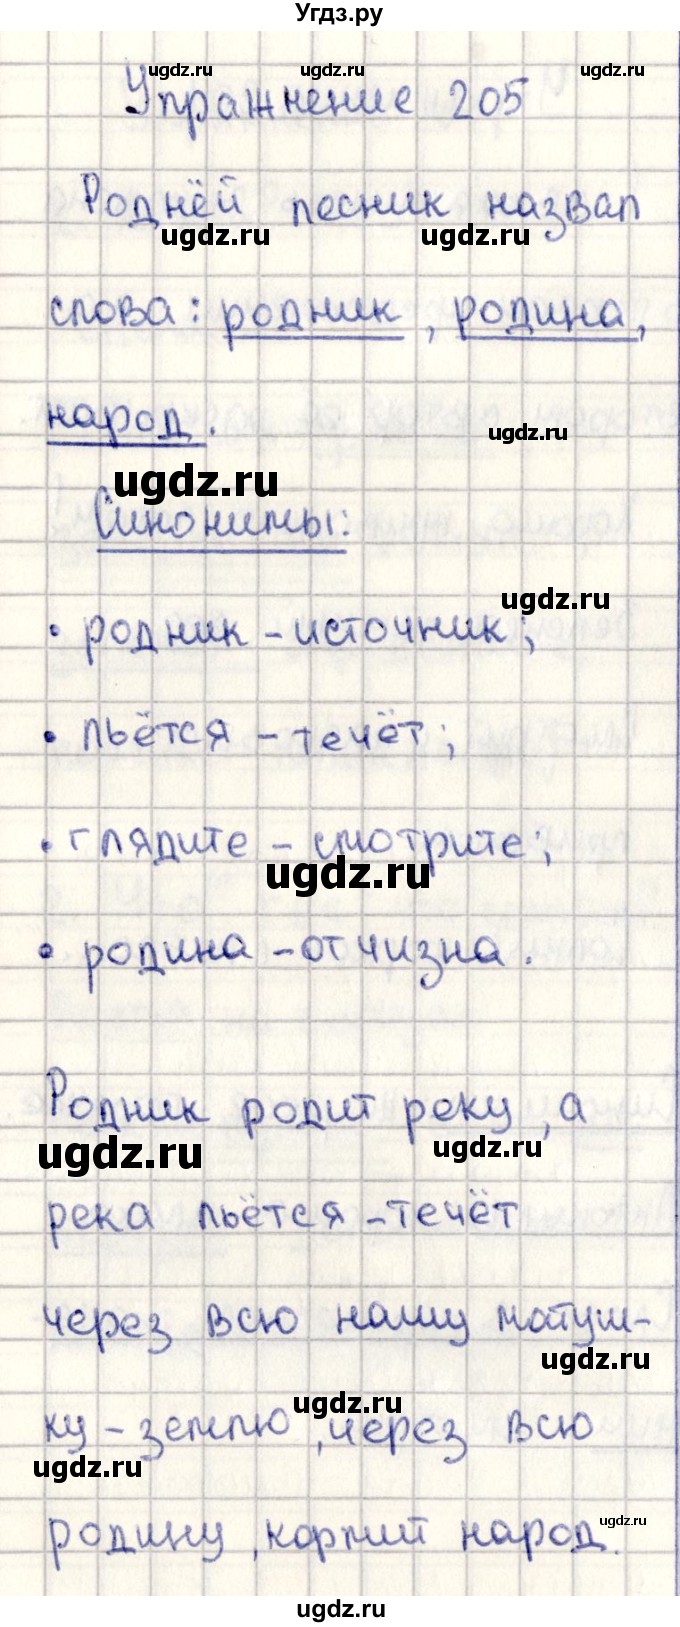 Угдз.ру
ugdz.ru ugdz.ru ugdz.ru
Упражнение 205
Родней лесник назвал
ugdz.ru ugdz.ru
слова: родник, родина,
народ.
ugdz.ru
ugdz.ru
Синонимы:
ugdz.ru
• родник – источник;
• льётся – течёт;
• глядите – смотрите;
ugdz.ru
• родина – отчизна.
Родник родит реку, а
ugdz.ru ugdz.ru
река льётся – течёт
через всю нашу матуш-
ugdz.ru
ugdz.ru
ку – землю, через всю
ugdz.ru
ugdz.ru
родину, кормит народ.
ugdz.ru